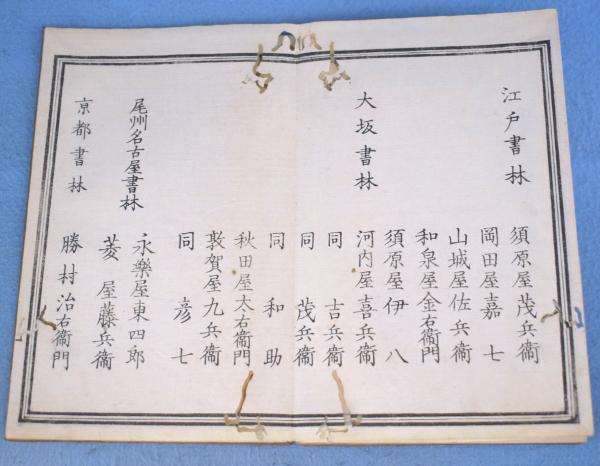 江戸書林
須原屋茂兵衞
岡田屋嘉七
山城屋佐兵衞
和泉屋金右衞門
須原屋伊八
大坂書林
河内屋喜兵衞
同吉兵衞
同茂兵衞
同和助
秋田屋太右衞門
敦賀屋九兵衞
同彦七
尾州名古屋書林
永樂屋東四郎
菱屋藤兵衞
亰都書林
勝村治右衞門